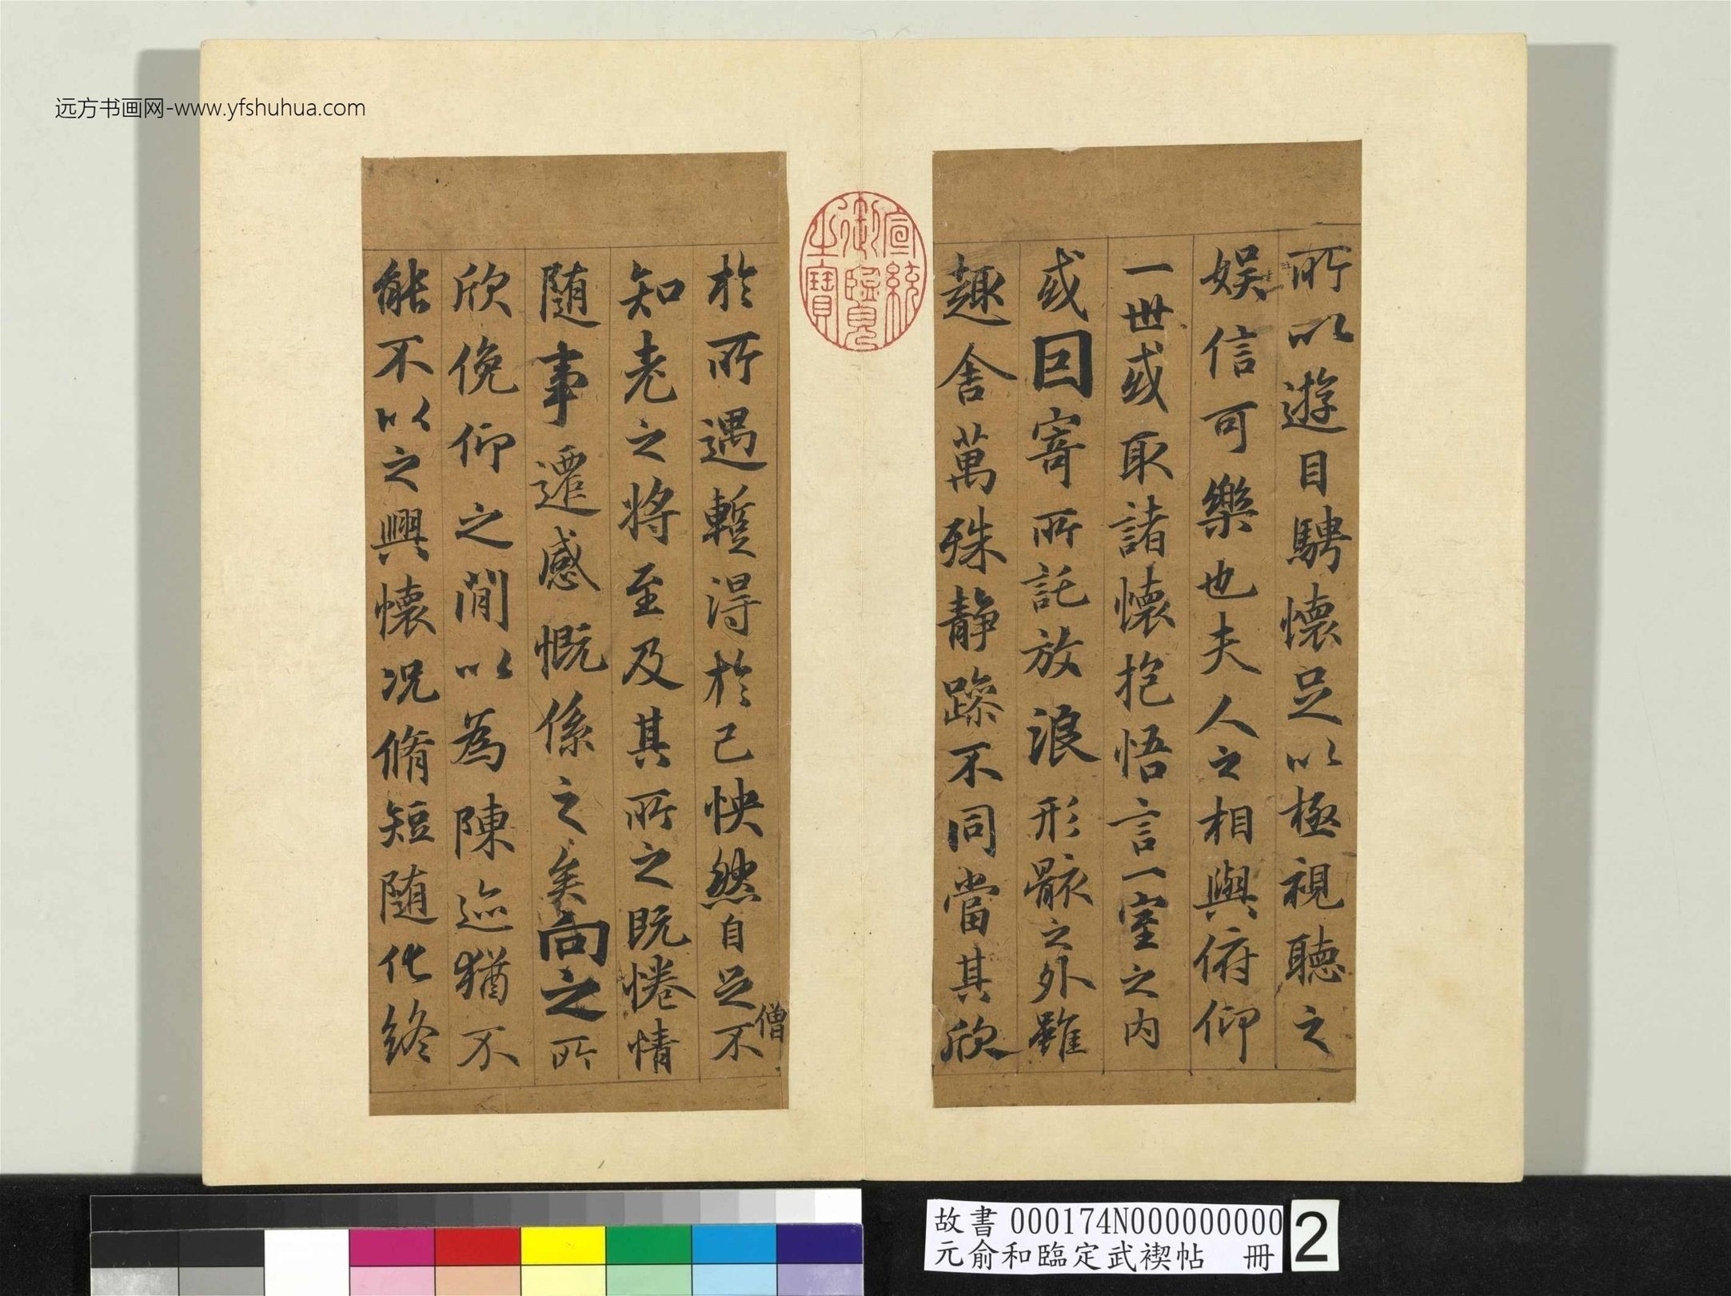 远方书画网-www.yfshuhua.com
所以遊目騁懷足以極視聽之
娛信可樂也夫人之相與俯仰
一世或取諸懷抱悟言一室之內
或因寄所託放浪形骸之外雖
趣舍萬殊静躁不同當其欣
宣統御覽之寶
於所遇蹔得於己怏然自足不
僧
知老之將至及其所之既惓情
隨事遷感慨係之矣向之所
欣俛仰之閒以為陳迹猶不
能不以之興懷況脩短隨化終
故書 000174N000000000
元俞和臨定武禊帖 冊
2